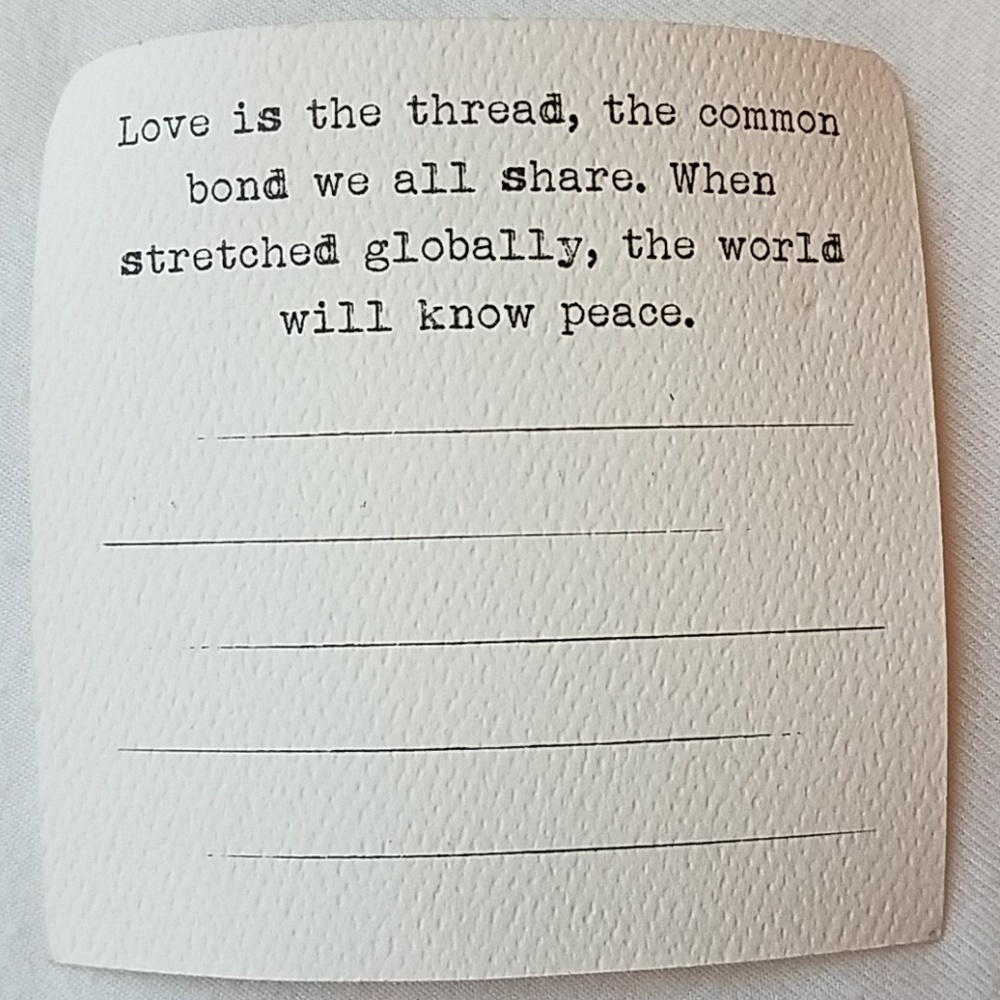 Love is the thread, the common
bond we all share. When
stretched globally, the world
will know peace.